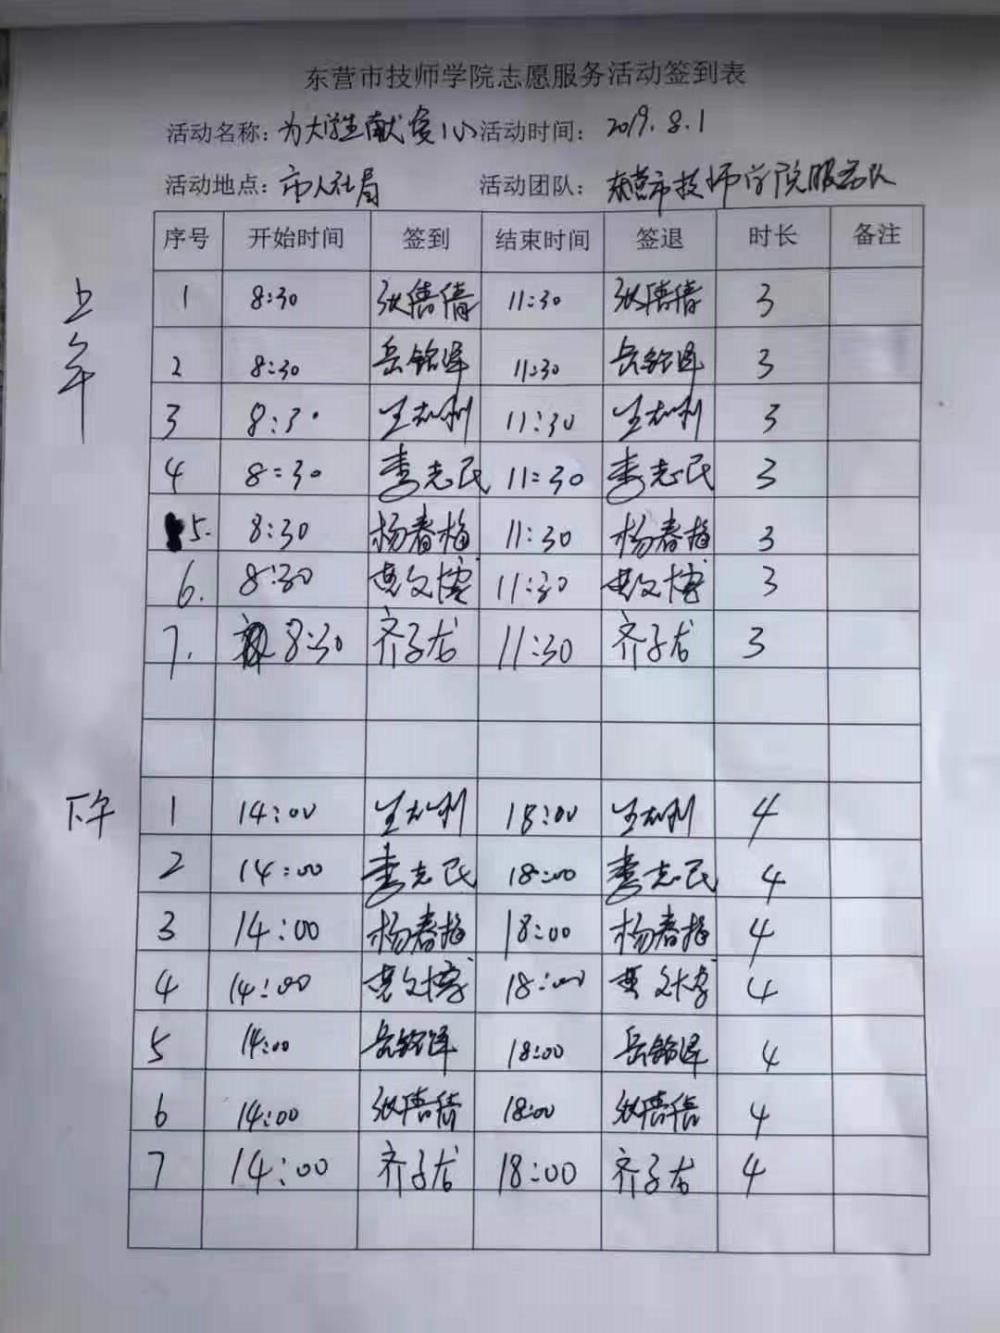 东营市技师学院志愿服务活动签到表
活动名称：为大学生献爱心 活动时间：2019.8.1
活动地点：市人社局 活动团队：东营市技师学院服务队
序号 开始时间 签到 结束时间 签退 时长 备注
上午
1 8:30 张倩倩 11:30 张倩倩 3
2 8:30 岳铭泽 11:30 岳铭泽 3
3 8:30 王志刚 11:30 王志刚 3
4 8:30 李志民 11:30 李志民 3
5. 8:30 杨春梅 11:30 杨春梅 3
6. 8:30 黄文博 11:30 黄文博 3
7. 8:30 齐子龙 11:30 齐子龙 3
下午
1 14:00 王志刚 18:00 王志刚 4
2 14:00 李志民 18:00 李志民 4
3 14:00 杨春梅 18:00 杨春梅 4
4 14:00 黄文博 18:00 黄文博 4
5 14:00 岳铭泽 18:00 岳铭泽 4
6 14:00 张倩倩 18:00 张倩倩 4
7 14:00 齐子龙 18:00 齐子龙 4